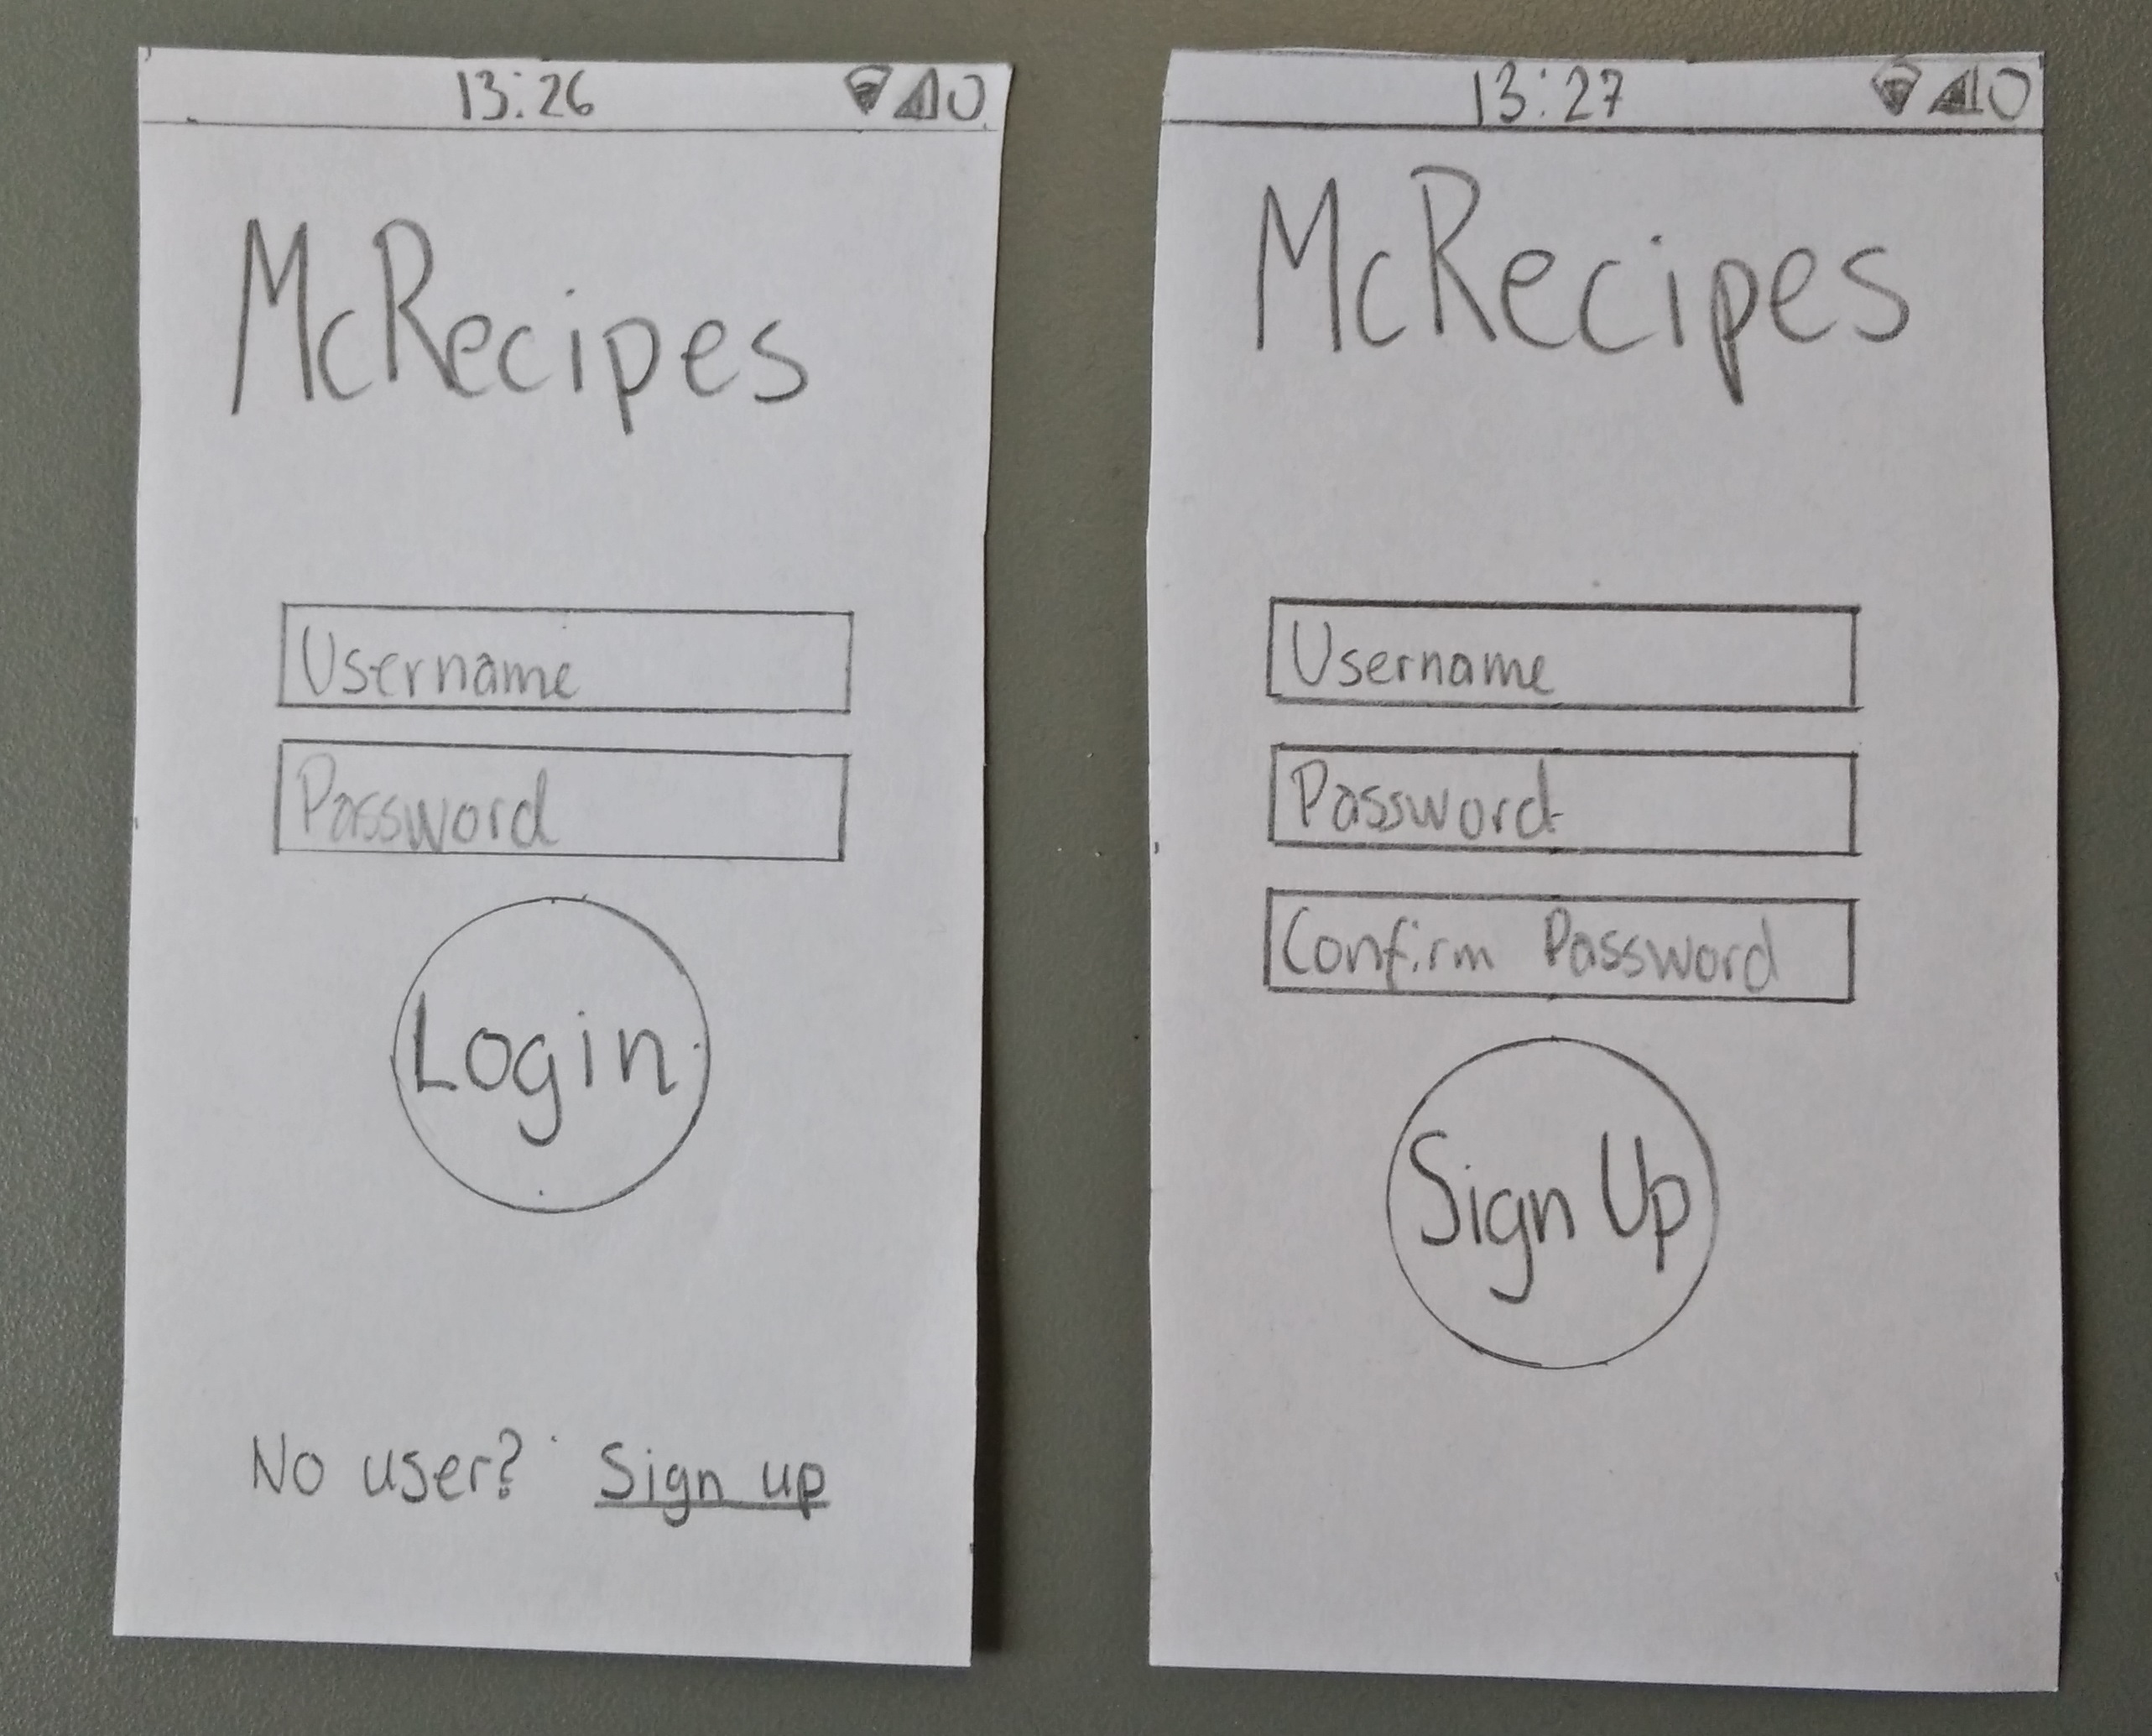 13:26
McRecipes
Username
Password
Login
No user? Sign up
13:27
McRecipes
Username
Password
Confirm Password
Sign Up